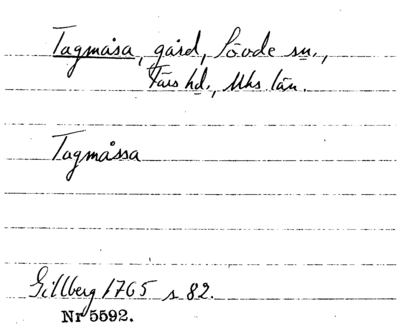 Tagmåsa, gård, Sövde sn.,
Färs hd., Mhs län.
Tagmåssa
Gillberg 1765 s 82.
Nr 5592.